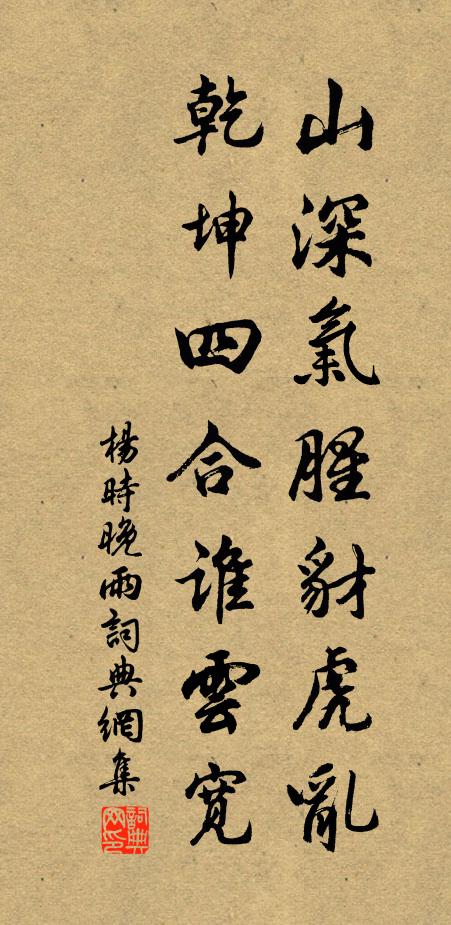 山深氣腥豺虎亂
乾坤四合誰雲寬
楊時晚雨詞典網集
詞典
网印